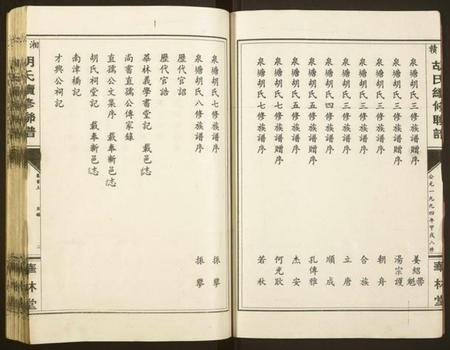 積
胡氏續修聯譜
公元一九九四年甲戌八修
華林堂
泉塘胡氏三修族譜贈序 姜紹勞魁
泉塘胡氏三修族譜贈序 湯宗護
泉塘胡氏三修族譜序 朝舟
泉塘胡氏三修族譜序 合族
泉塘胡氏四修族譜序 立唐
泉塘胡氏五修族譜序 順成
泉塘胡氏五修族譜贈序 孔傳雅
泉塘胡氏七修族譜序 杰安
泉塘胡氏七修族譜贈序 何光耿
泉塘胡氏七修族譜序 若秋
泉塘胡氏八修族譜序 振擎
泉塘胡氏八修族譜序 振擎
歷代官誥
歷代官語
華林義學書堂記 載邑志
尚書直孺公傳家錄
直孺公文集序 載奉新邑志
胡氏祠堂記 載奉新邑志
南津橋記
才興公祠記
湘
胡氏續修聯譜
卷首上
華林堂